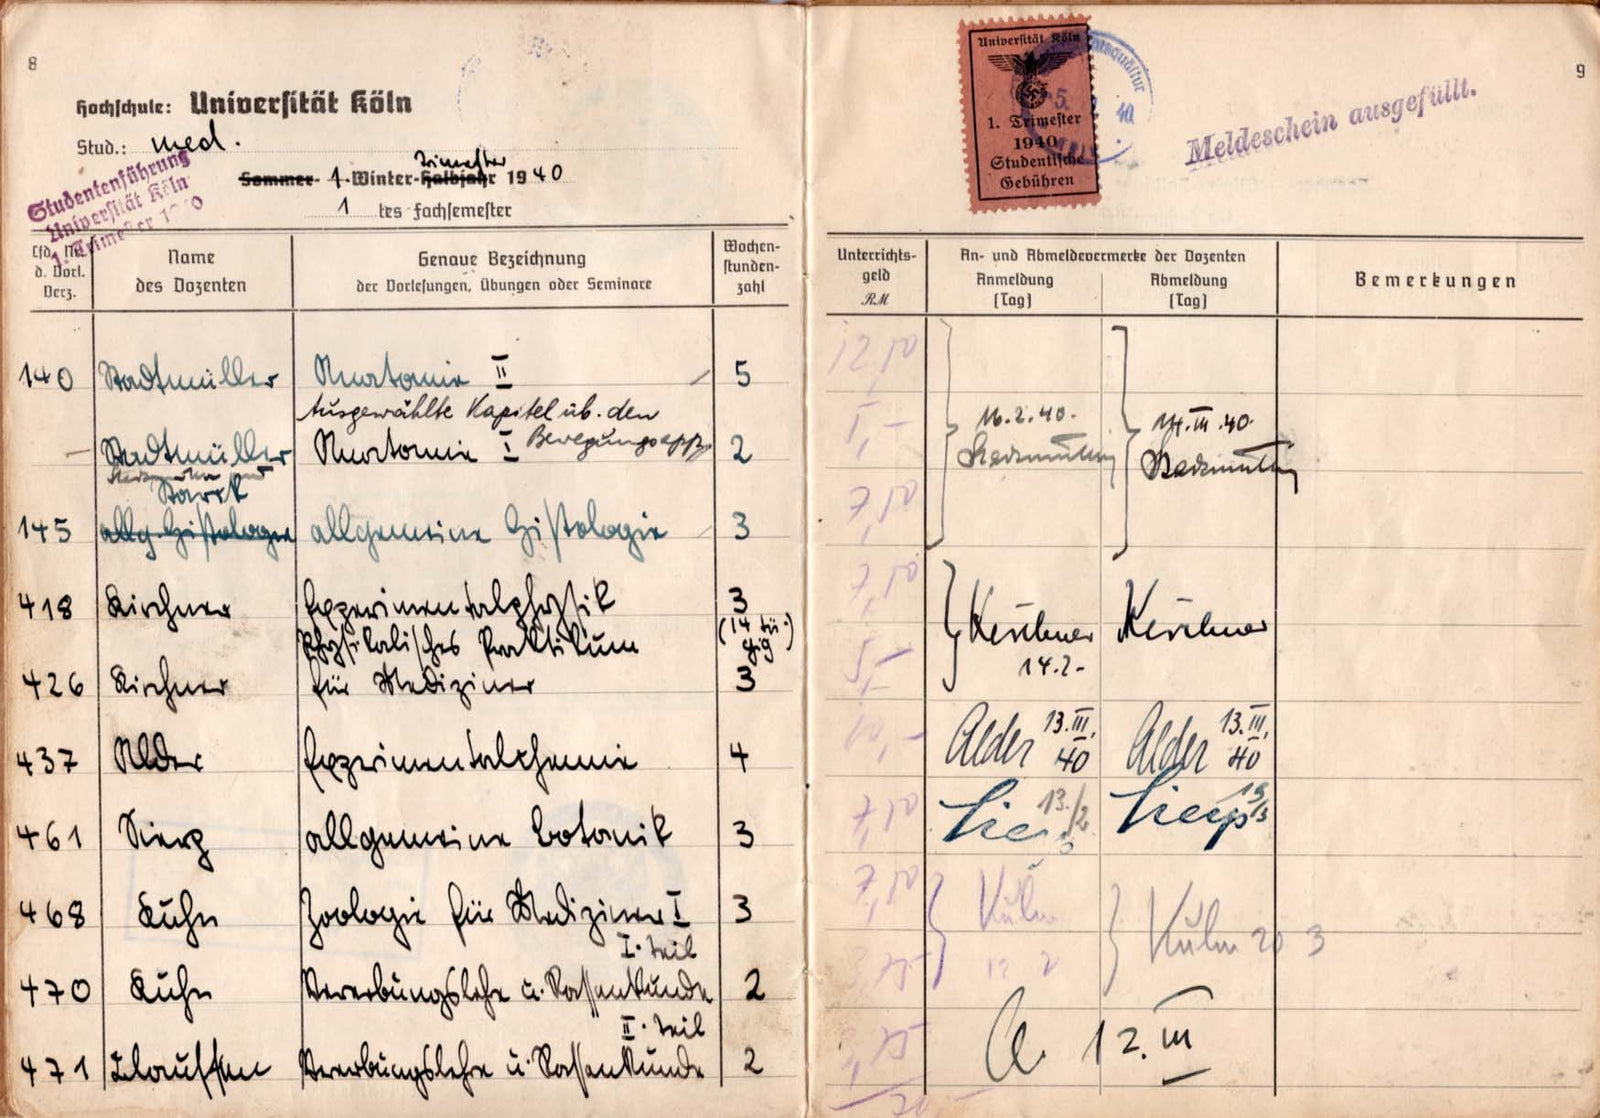 8
Hochschule: Universität Köln
Stud.: med.
Studentenführung
Universität Köln
1. Trimester 1940
Trimester
Sommer- 1. Winter-Halbjahr 1940
1 tes Fachsemester
Lfd. Nr. d. Vorl. Verz.
Name des Dozenten
Genaue Bezeichnung der Vorlesungen, Übungen oder Seminare
Wochenstundenzahl
140 Stadtmüller Anatomie II 5
Ausgewählte Kapitel üb. den
– Stadtmüller Anatomie I Bewegungsapp. 2
Starck
145 allg. Histologie allgemeine Histologie 3
418 Kirchner Experimentalphysik 3
Physikalisches Praktikum (14 tägig)
426 Kirchner für Mediziner 3
437 Alder Experimentalchemie 4
461 Sierp allgemeine Botanik 3
468 Kuhn Zoologie für Mediziner I 3
I. Teil
470 Kuhn Vererbungslehre u. Rassenkunde 2
II. Teil
471 Claussen Vererbungslehre u. Rassenkunde 2
9
Universität Köln
1. Trimester
1940
Studentische
Gebühren
5. 40
Meldeschein ausgefüllt.
Unterrichtsgeld RM
An- und Abmeldevermerke der Dozenten
Anmeldung (Tag)
Abmeldung (Tag)
Bemerkungen
16.2.40. 14.III.40.
Stadtmüller Stadtmüller
Kirchner Kirchner
14.2.
Alder 13.III.40 Alder 13.III.40
Sierp 13./2 Sierp 13/3
Kuhn Kuhn 20 3
12 2
Cl. 12.III